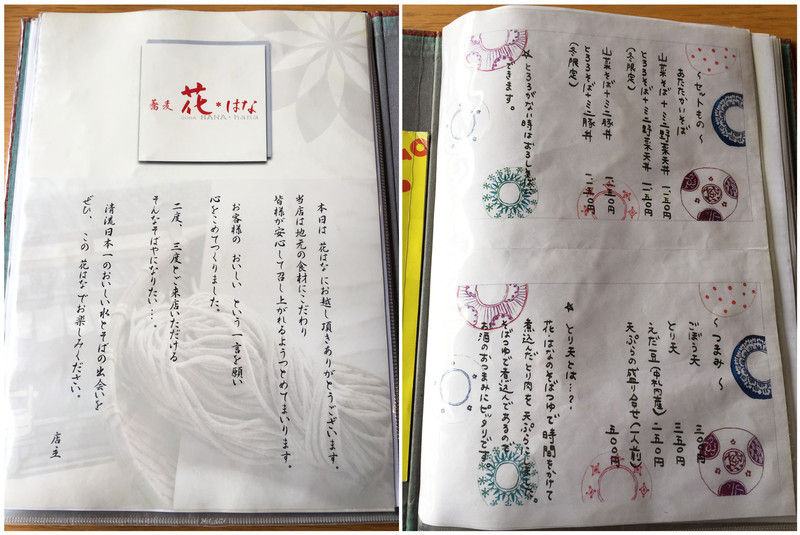 蕎麦 花*はな
SOBA HANA*hana
本日は 花はな にお越し頂きありがとうございます。
当店は地元の食材にこだわり
皆様が安心して召し上がれるようつとめてまいります。
お客様の おいしい という一言を願い
心をこめてつくりました。
二度、三度とご来店いただける
そんなそばやになりたい…。
清流日本一のおいしい水とそばの出会いを
ぜひ、この 花はな でお楽しみください。
店主
～セットもの～
あたたかいそば
山菜そば+ミニ野菜天丼
とろろそば+ミニ野菜天丼
(冬限定)
山菜そば+ミニ豚丼
とろろそば+ミニ豚丼
(冬限定)
★とろろがない時はおろしそば
できます。
～つまみ～
ごぼう天 三〇〇円
とり天 三五〇円
えだ豆(中札内産) 二五〇円
天ぷらの盛り合せ(一人前) 五〇〇円
★とり天とは…?
花はなのそばつゆで時間をかけて
煮込んだとり肉を天ぷらにしました。
そばつゆで煮込んであるので
お酒のおつまみにピッタリです。